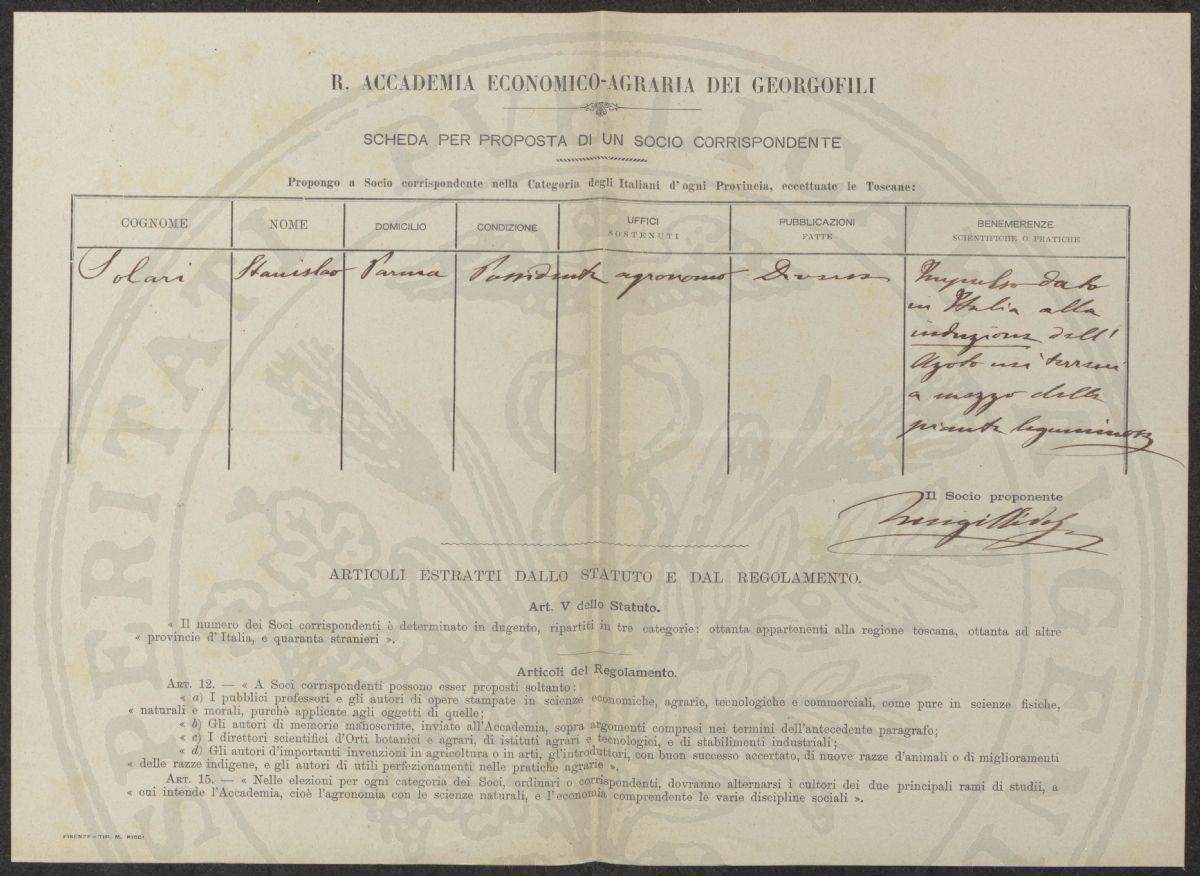 R. ACCADEMIA ECONOMICO-AGRARIA DEI GEORGOFILI
SCHEDA PER PROPOSTA DI UN SOCIO CORRISPONDENTE
Propongo a Socio corrispondente nella Categoria degli Italiani d'ogni Provincia, eccettuate le Toscane:
COGNOME NOME DOMICILIO CONDIZIONE UFFICI SOSTENUTI PUBBLICAZIONI FATTE BENEMERENZE SCIENTIFICHE O PRATICHE
Solari Stanislao Parma Possidente agronomo Diverse Impulso dato
in Italia alla
induzione dell'
Azoto nei terreni
a mezzo delle
piante leguminose
Il Socio proponente
ARTICOLI ESTRATTI DALLO STATUTO E DAL REGOLAMENTO.
Art. V dello Statuto.
« Il numero dei Soci corrispondenti è determinato in dugento, ripartiti in tre categorie: ottanta appartenenti alla regione toscana, ottanta ad altre
« provincie d'Italia, e quaranta stranieri ».
Articoli del Regolamento.
ART. 12. — « A Soci corrispondenti possono esser proposti soltanto:
« a) I pubblici professori e gli autori di opere stampate in scienze economiche, agrarie, tecnologiche e commerciali, come pure in scienze fisiche,
« naturali e morali, purchè applicate agli oggetti di quelle;
« b) Gli autori di memorie manoscritte, inviate all'Accademia, sopra argomenti compresi nei termini dell'antecedente paragrafo;
« c) I direttori scientifici d'Orti botanici e agrari, di istituti agrari e tecnologici, e di stabilimenti industriali;
« d) Gli autori d'importanti invenzioni in agricoltura o in arti, gl'introduttori, con buon successo accertato, di nuove razze d'animali o di miglioramenti
« delle razze indigene, e gli autori di utili perfezionamenti nelle pratiche agrarie ».
ART. 15. — « Nelle elezioni per ogni categoria dei Soci, ordinari o corrispondenti, dovranno alternarsi i cultori dei due principali rami di studii, a
« cui intende l'Accademia, cioè l'agronomia con le scienze naturali, e l'economia comprendente le varie discipline sociali ».
FIRENZE – TIP. M. RICCI
PROSPERITATI PUBLICAE AUGENDAE